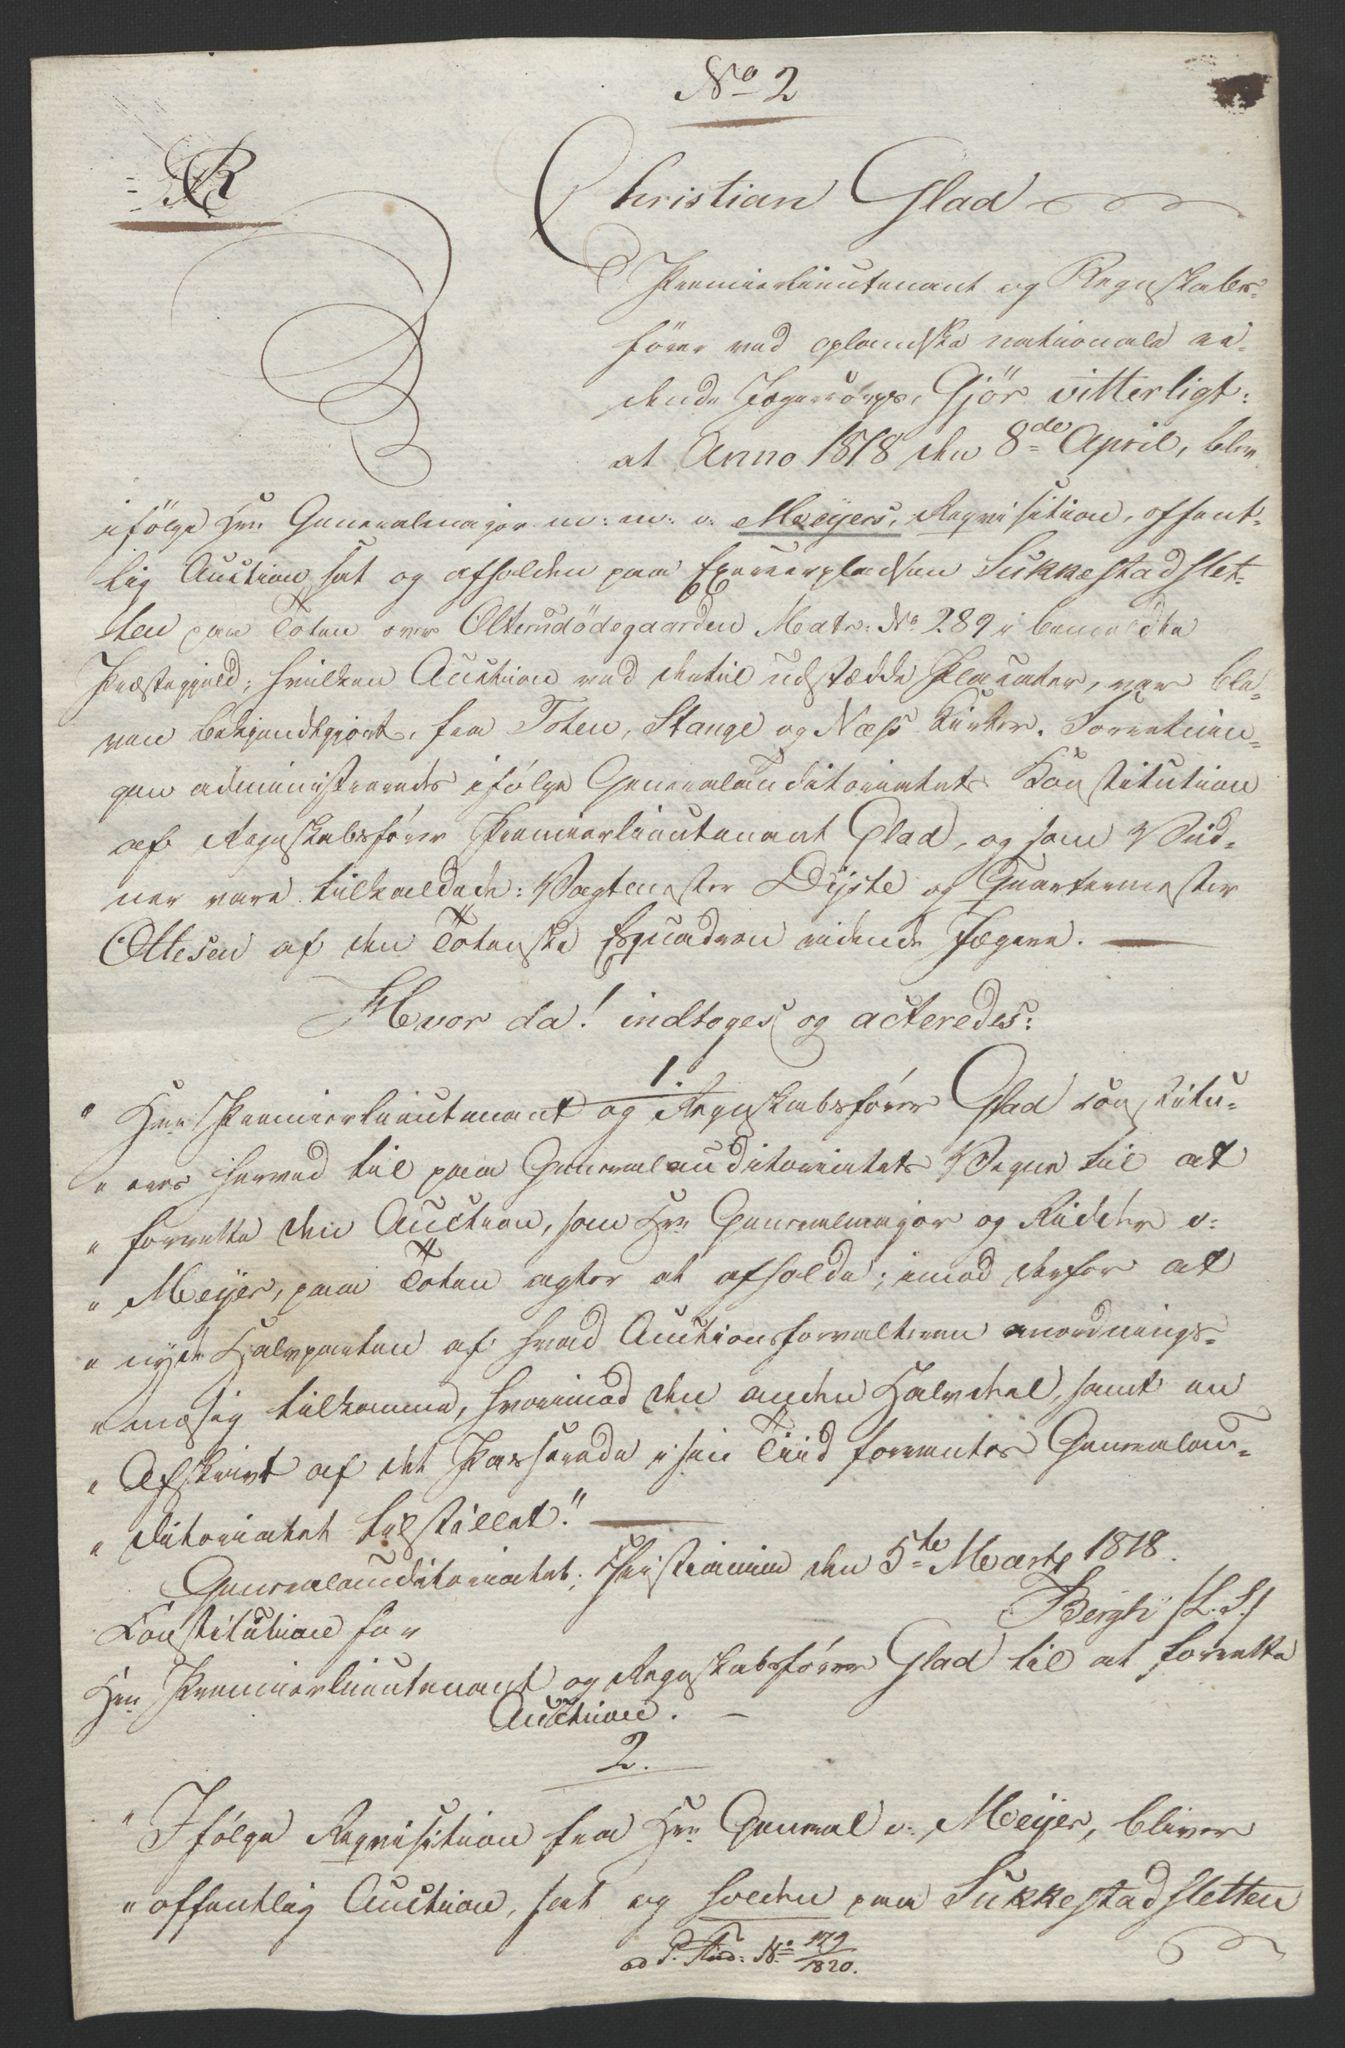 No 2
Christian Glad
Premierlieutenant og Regnskabs-
fører ved oplandske nationale ri-
dende Jægercorps, Gjör vitterligt:
at Anno 1818 den 8de April, blev
ifölge Hr: Generalmajor m: m: v: Meÿers, Reqvisition, offent-
lig Auction sat og afholden paa Exerceerpladsen Sukkestadslet-
ten paa Toten over Ølterudödegaarden Matr: No 289 i bemeldte
Præstegjeld; hvilken Auction ved dertil udstædde Placater, var ble-
ven bekjendtgjort, fra Toten, Stange og Næss Kirker. Forretnin-
gen administreredes ifölge Generalauditoriatets Constitution
af Regnskabsförer Premierlieutenant Glad, og som Vid-
ner vare tilkaldede: Vagtmester Dÿste og Quartermester
Ottesen af den Totenske Esquadron ridende Jægere.
Hvor da! indtoges og acteredes:
1.
" Herr Premierlieutenant og Regnskabsförer Glad constitu-
" eres herved til paa Generalauditoriatets Vegne til at
" forrette den Auction, som Hr: Generalmajor og Ridder v:
" Meÿer, paa Toten agter at afholde; imod derfor at
" nyde Halvparten af hvad Auctionsforvalteren anordnings-
" mæsig tilkomme, hvorimod den anden Halvdeel, samt en
" Afskrivt af det Passerede i sin Tiid forventes Generalau-
" ditoriatet tilstillet."
Generalauditoriatet, Christiania den 5te Marts 1818.
Bergh (L. S.)
Constitution for
Hr: Premierlieutenant og Regnskabsförer Glad til at forrette
Auction.
2.
" Ifölge Reqvisition fra Hr: General v: Meÿer, bliver
" offentlig Auction, sat og holden paa Sukkestadsletten
ad P. No 179/1820.